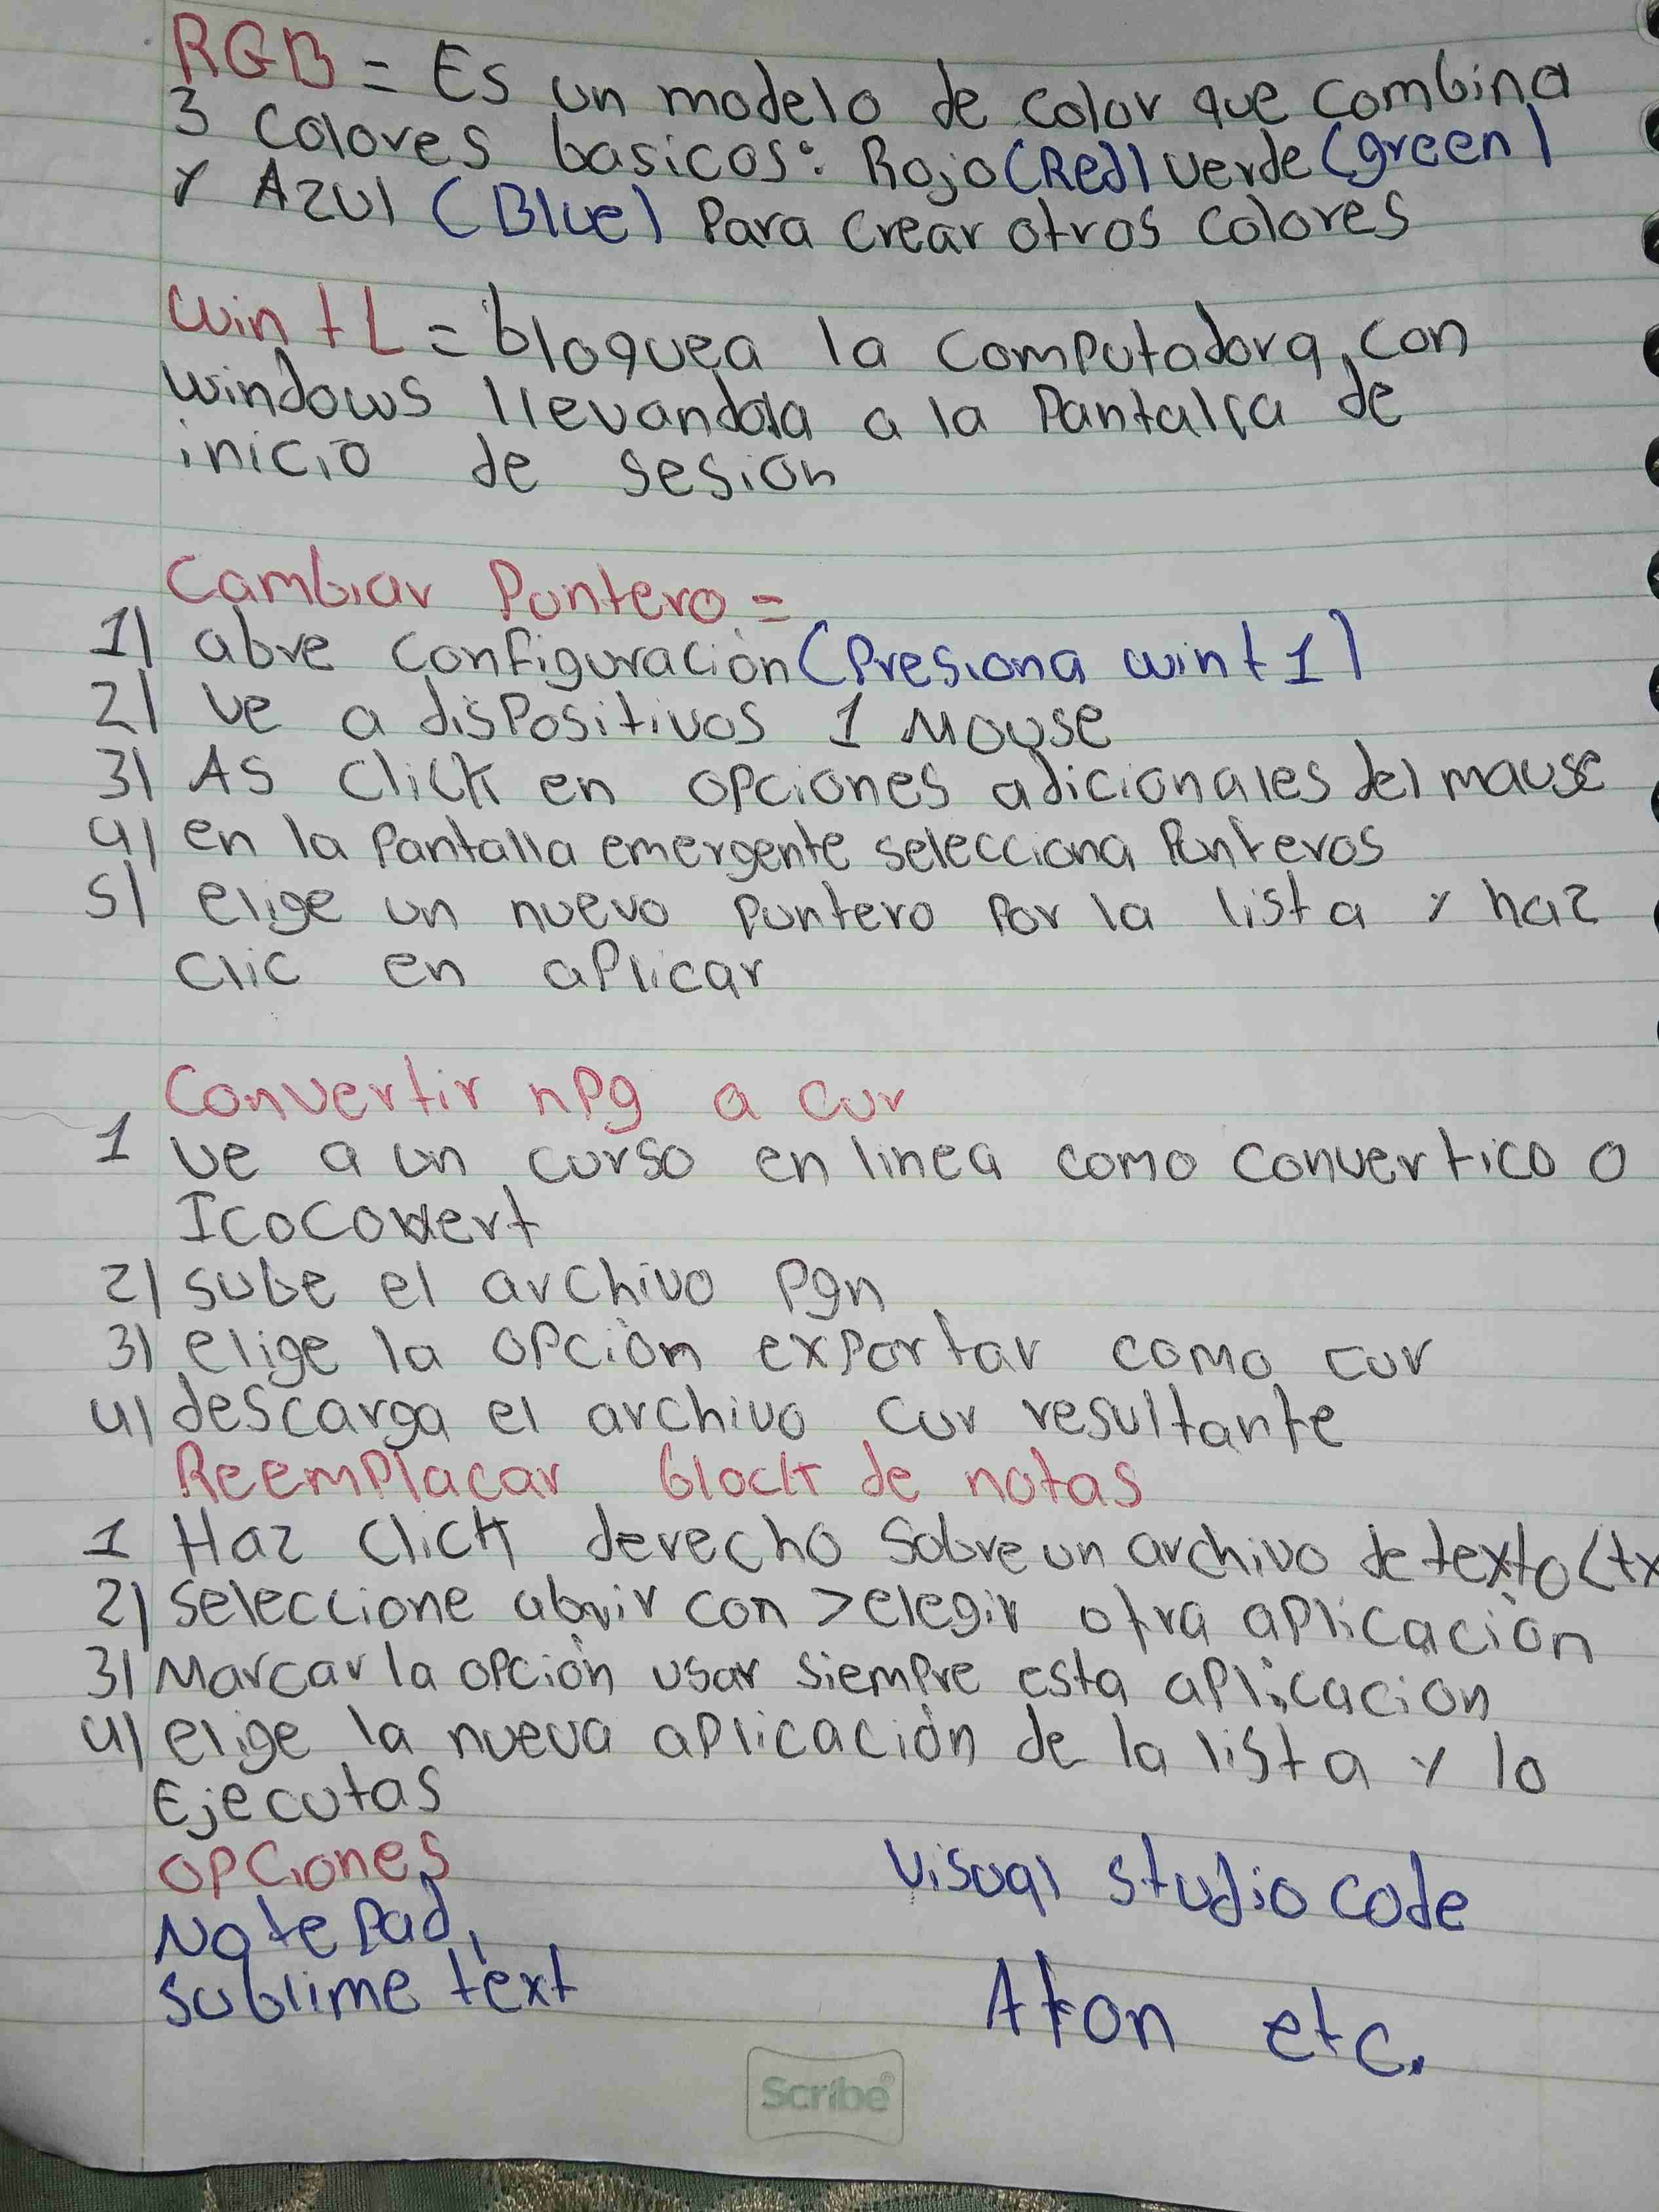 RGB = Es un modelo de color que combina
3 Colores basicos: Rojo (Red) verde (green)
y Azul (Blue) Para crear otros colores
Win + L = bloquea la computadora, con
windows llevandola a la Pantalla de
inicio de sesión
Cambiar Puntero =
1) abre configuración (Presiona win + 1)
2) ve a disPositivos 1 Mouse
3) As Click en opciones adicionales del mause
4) en la Pantalla emergente selecciona Punteros
5) elige un nuevo puntero Por la lista y haz
clic en aplicar
Convertir nPg a cur
1 ve a un curso en linea como convertico o
Icoconvert
2) sube el archivo pgn
3) elige la opción exportar como cur
4) descarga el archivo cur resultante
Reemplacar block de notas
1 Haz click derecho sobre un archivo de texto (tx
2) seleccione abrir con > elegir otra aplicación
3) Marcar la opción usar siempre esta aplicacion
4) elige la nueva aplicación de la lista y lo
Ejecutas
opciones
Notepad, Visual studio code
sublime text Aton etc.
Scribe®